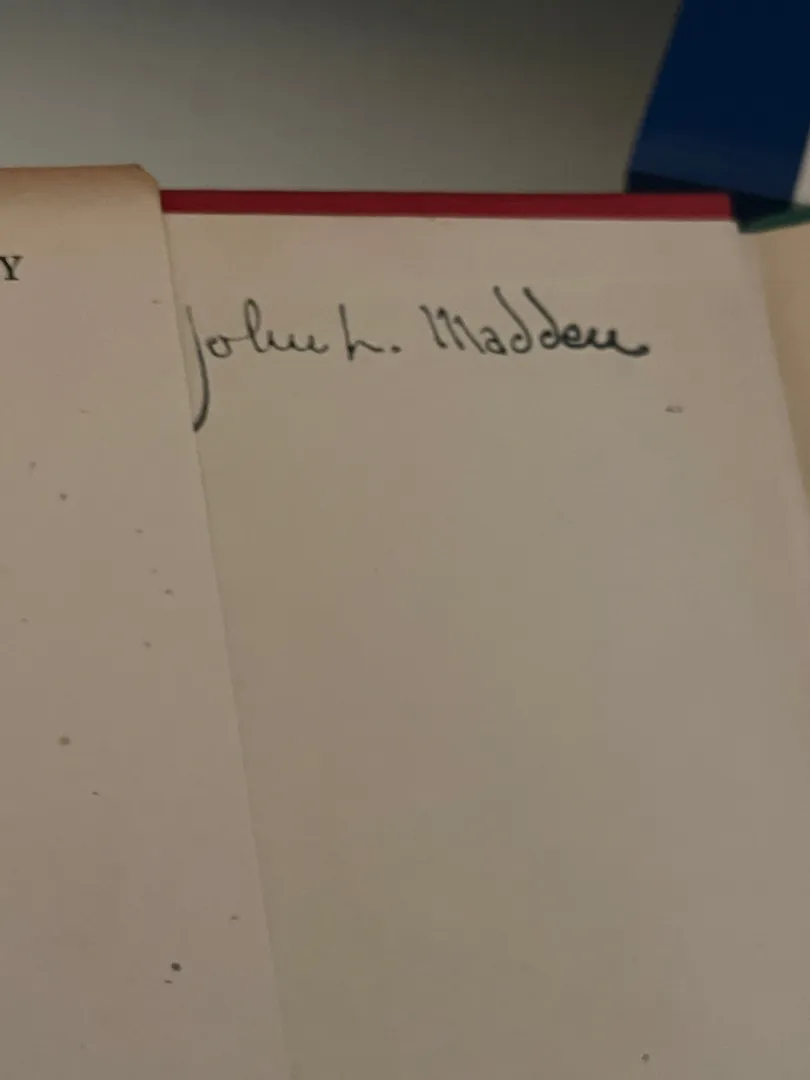 Y
John L. Madden